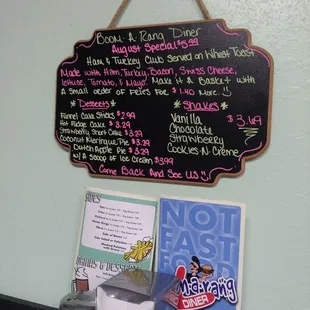 Boom A Rang Diner
August Special $5.99
Ham & Turkey Club Served on Wheat Toast
Made with Ham, Turkey, Bacon, Swiss Cheese,
lettuce, Tomato, & Mayo. Make it a Basket with
a small order of Fries For $1.40 More.
Desserts
Funnel Cake Sticks $2.99
Hot Fudge Cake $3.29
Strawberry Short Cake $3.29
Coconut Meringue Pie $3.29
Dutch Apple Pie $3.29
w/ A Scoop of Ice Cream $3.99
Shakes
Vanilla
Chocolate
Strawberry
Cookies-N-Creme
$3.49
Come Back And See US
SIDES
DRINKS & DESSERTS
NOT
FAST
FOOD
DINER